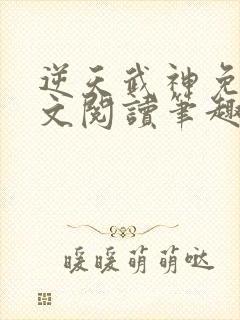 逆天武神免
文閱讀筆趣
暖暖萌萌噠